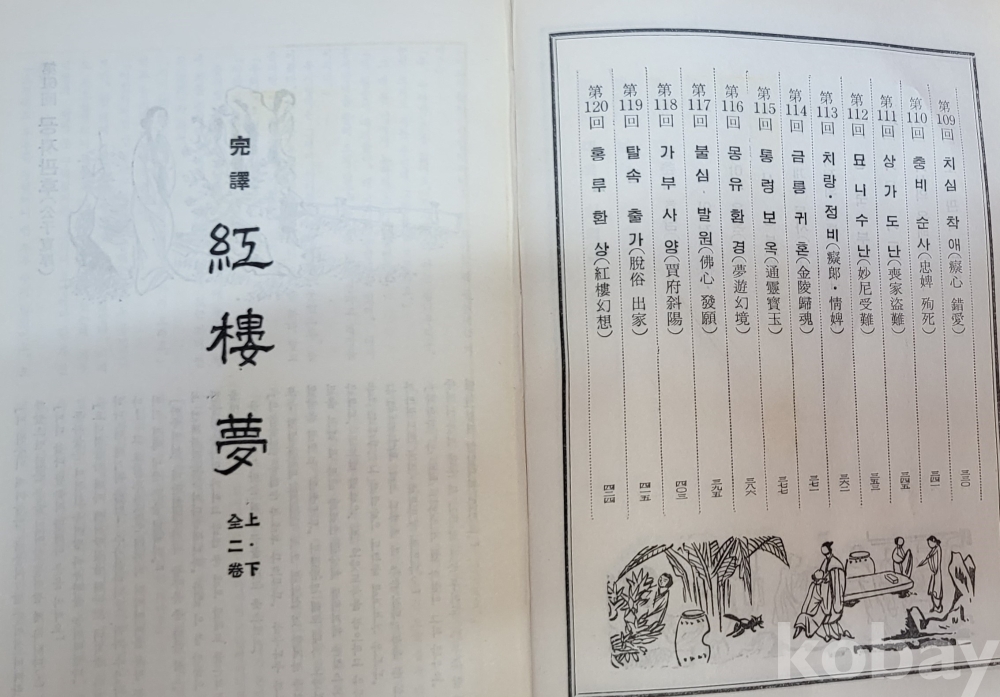 第109回 치심 착애(癡心 錯愛) 三三〇
第110回 충비 순사(忠婢 殉死) 三四一
第111回 상가도난(喪家盜難) 三四五
第112回 묘니수난(妙尼受難) 三五三
第113回 치랑・정비(癡郞・情婢) 三六二
第114回 금릉귀혼(金陵歸魂) 三七一
第115回 통령보옥(通靈寶玉) 三七七
第116回 몽유환경(夢遊幻境) 三八六
第117回 불심・발원(佛心 發願) 三九五
第118回 가부사양(買府斜陽) 四〇三
第119回 탈속 출가(脫俗 出家) 四一五
第120回 홍루환상(紅樓幻想) 四二四
完譯
紅樓夢
上・下
全二卷
kobay